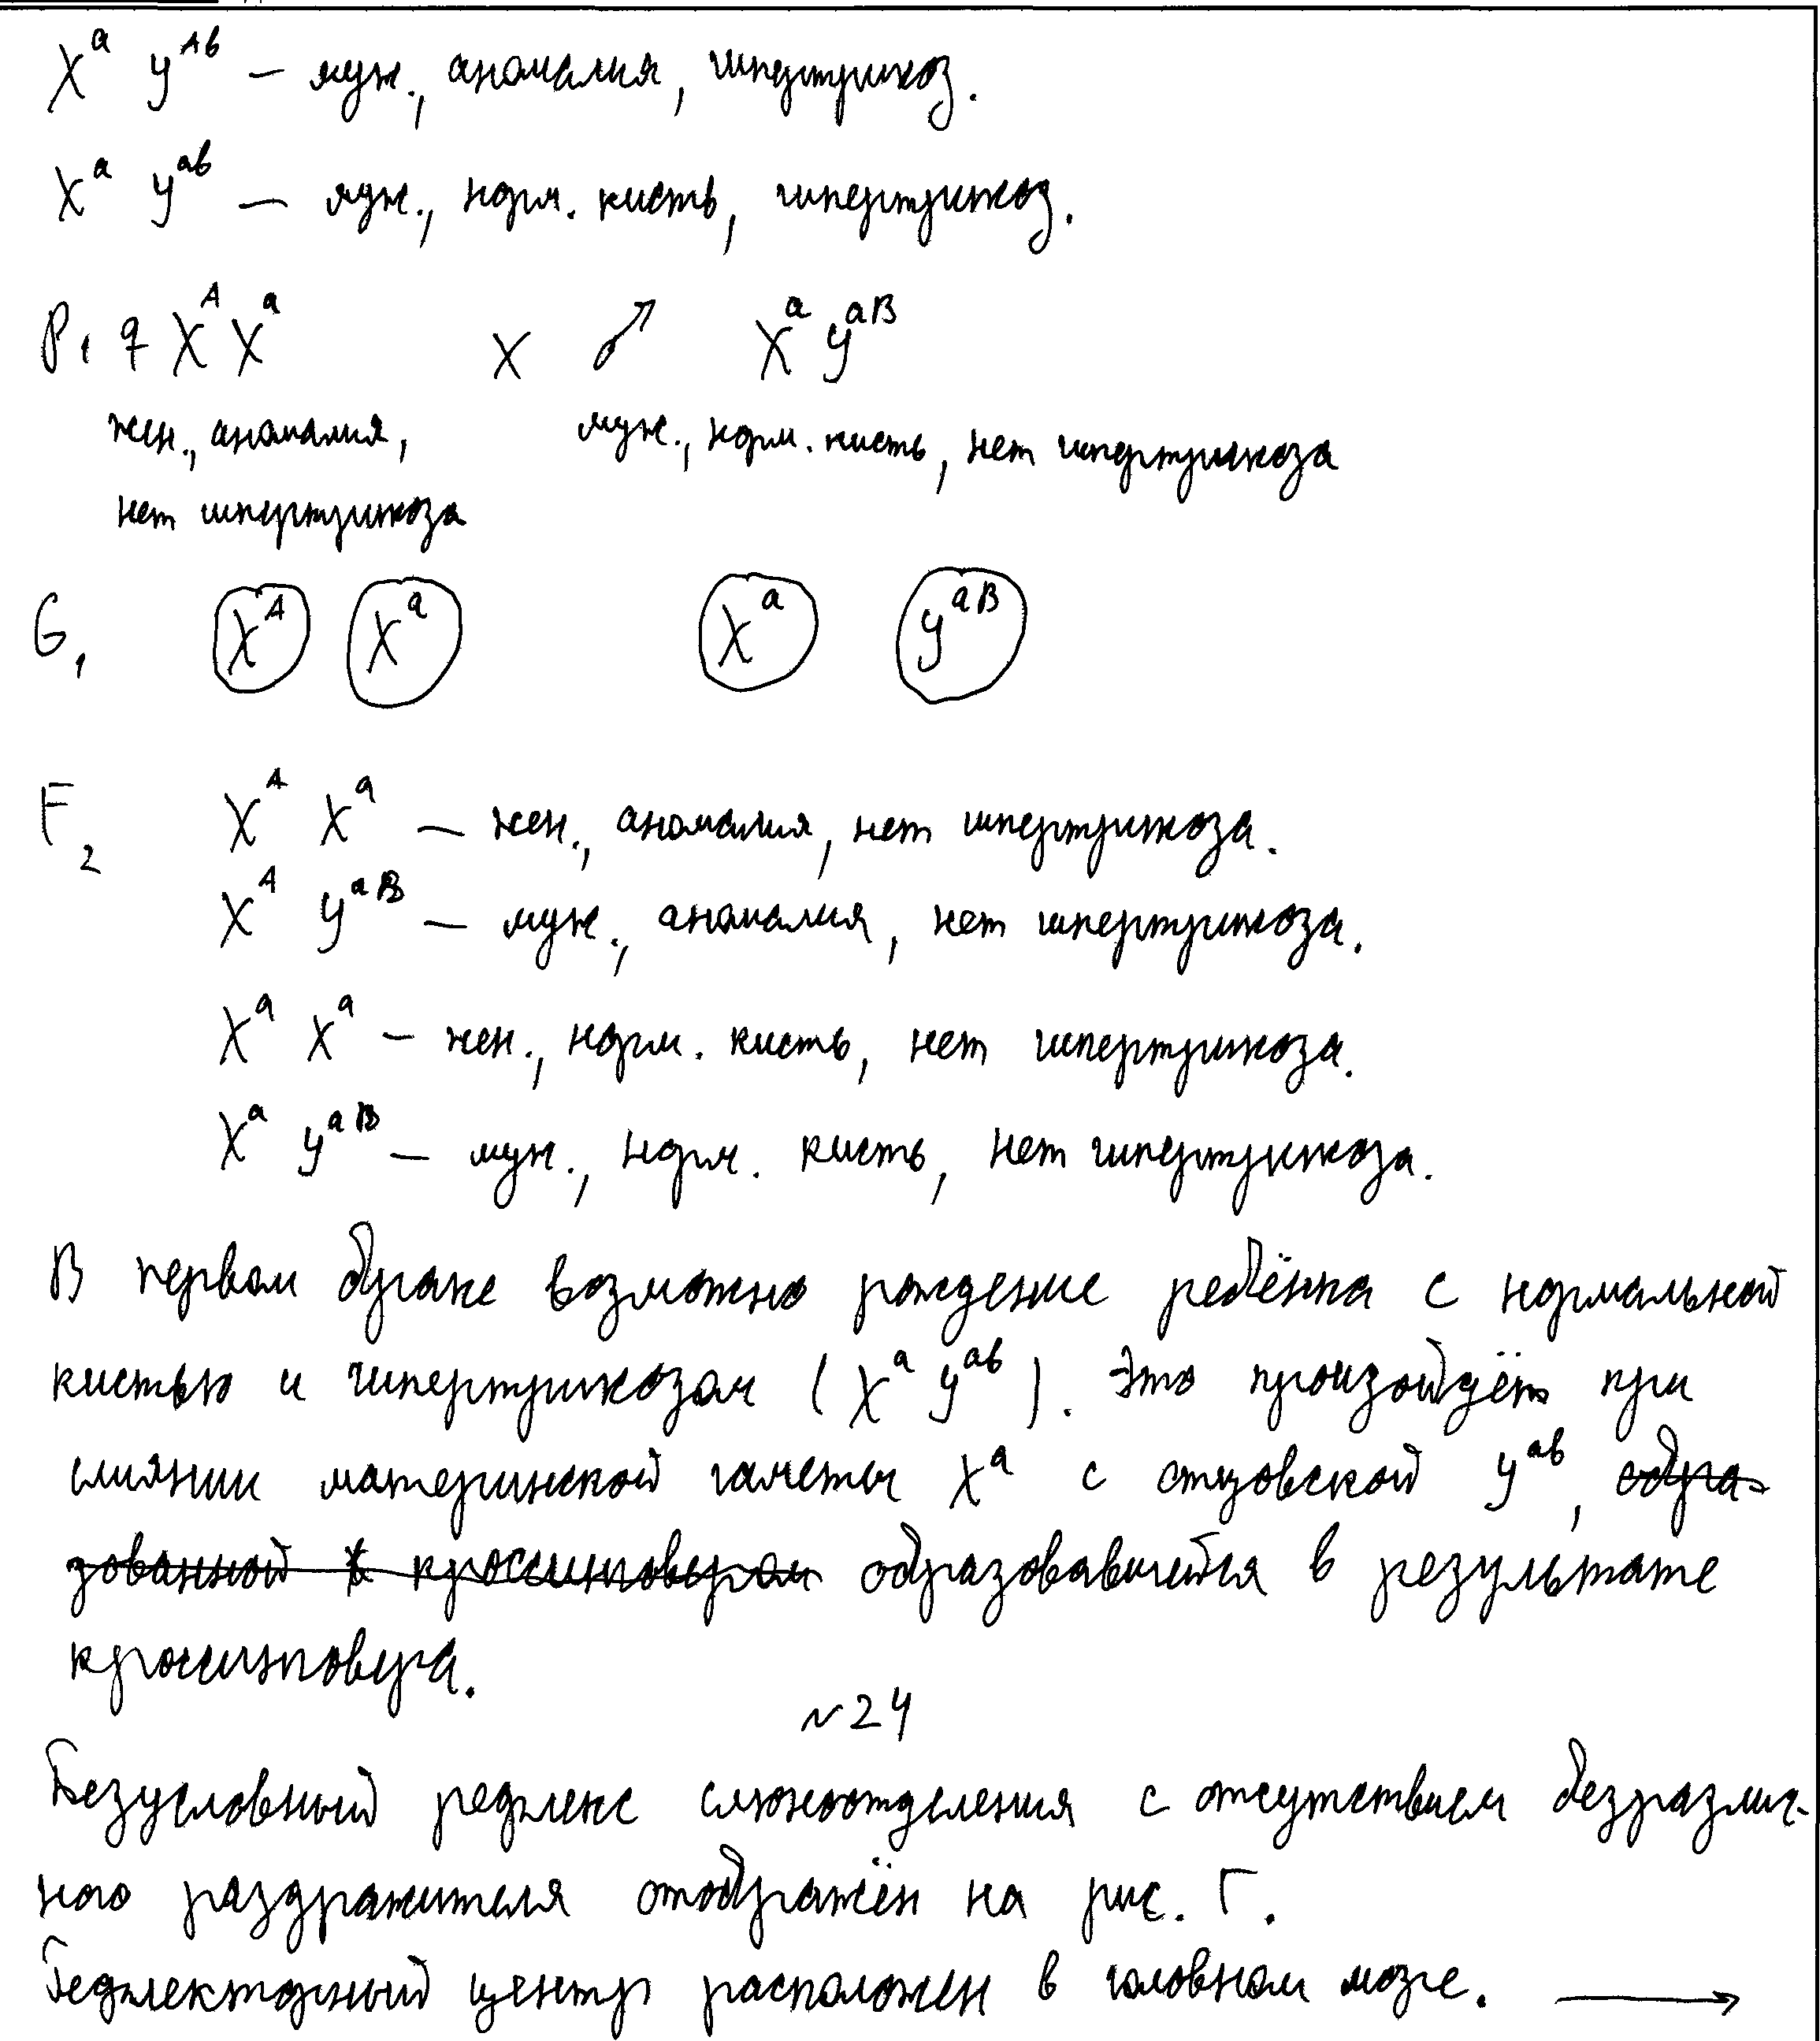 X^a У^Ab – муж., аномалия, гипертрихоз.
X^a У^ab – муж., норм. кисть, гипертрихоз.
P₁ ♀ X^A X^a × ♂ X^a У^aB
жен., аномалия, муж., норм. кисть, нет гипертрихоза
нет гипертрихоза
G₁ X^A X^a X^a У^aB
F₂ X^A X^a – жен., аномалия, нет гипертрихоза.
X^A У^aB – муж., аномалия, нет гипертрихоза.
X^a X^a – жен., норм. кисть, нет гипертрихоза.
X^a У^aB – муж., норм. кисть, нет гипертрихоза.
В первом браке возможно рождение ребёнка с нормальной
кистью и гипертрихозом (X^a У^ab). Это произойдёт при
слиянии материнской гаметы X^a с отцовской У^ab, обра-
зованной к кроссинговером образовавшейся в результате
кроссинговера.
№24
Безусловный рефлекс слюноотделения с отсутствием безразлич-
ного раздражителя отображён на рис. Г.
Рефлекторный центр расположен в головном мозге. →